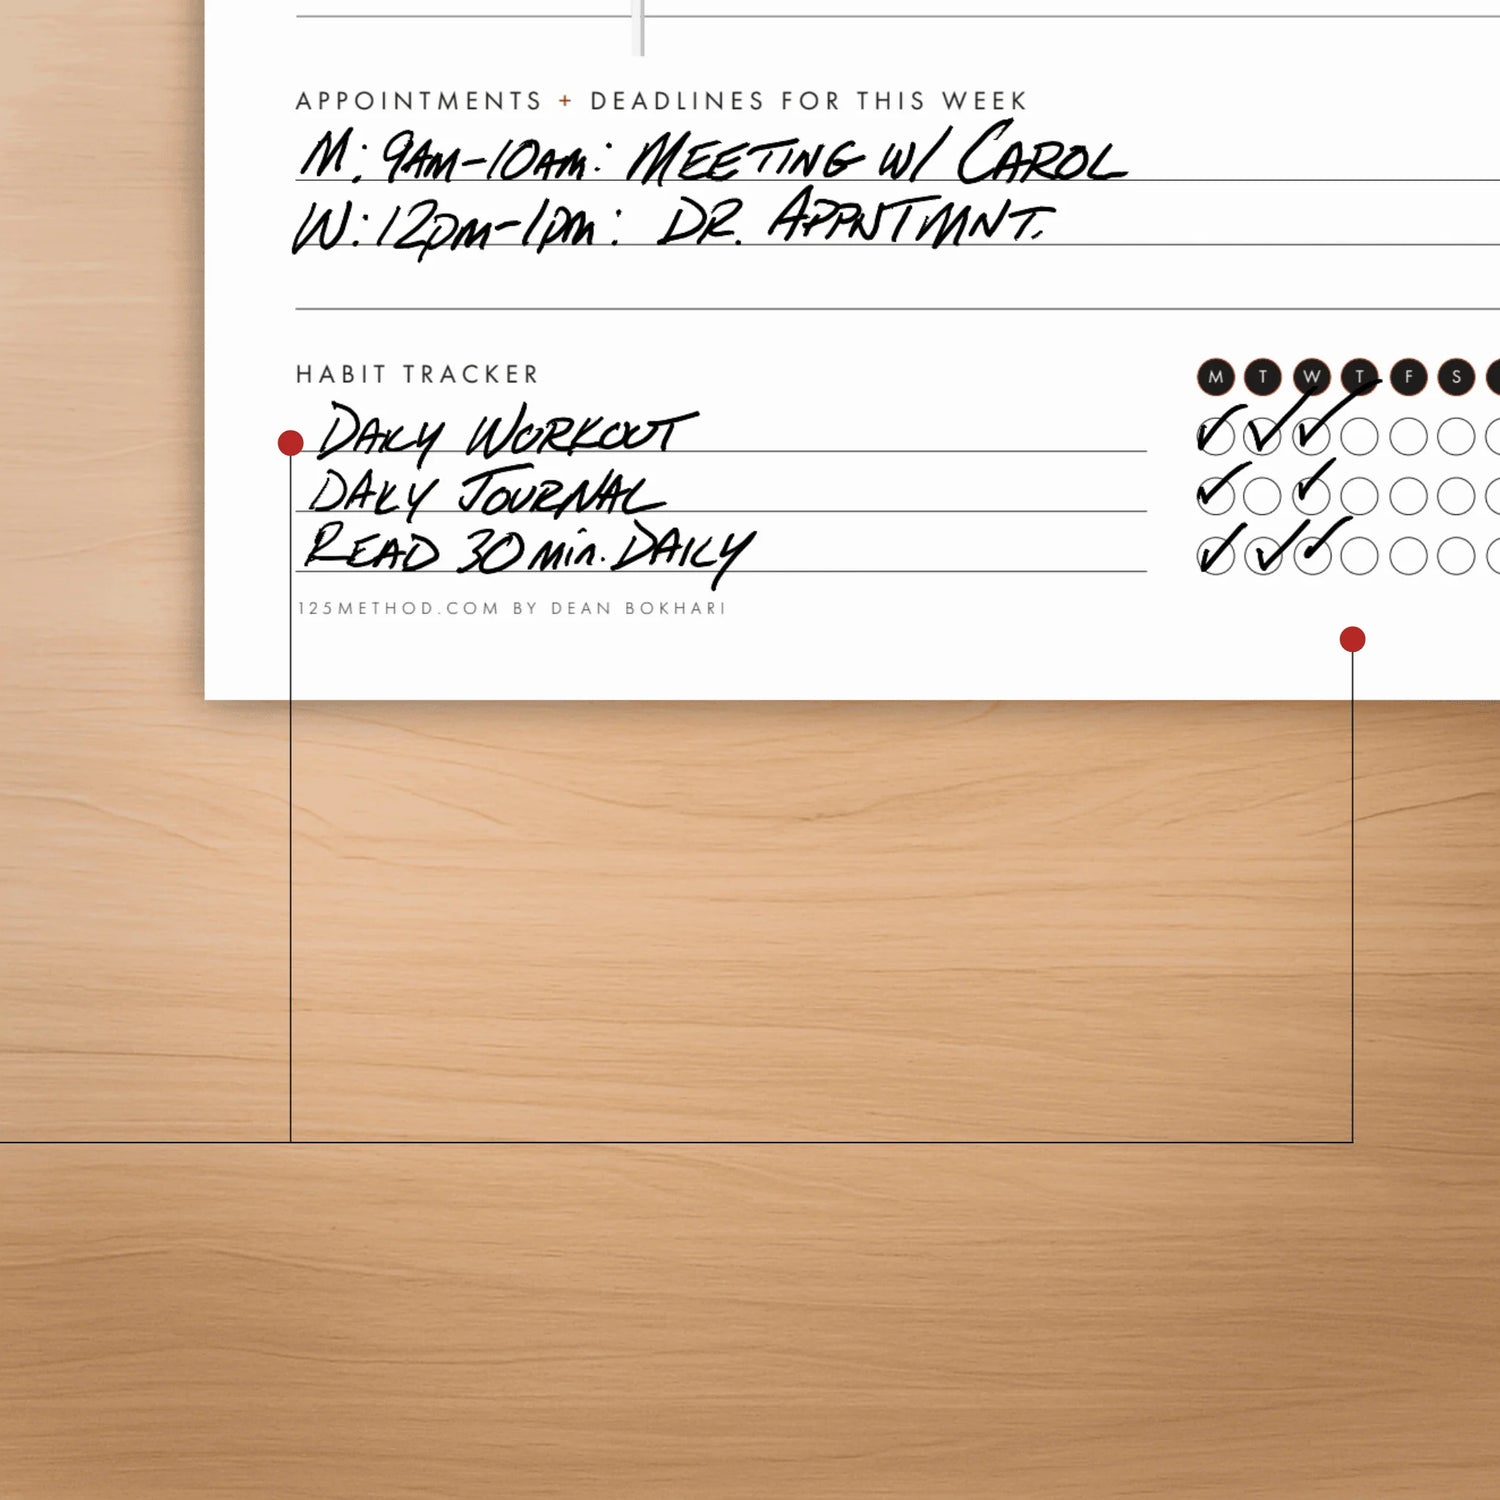 APPOINTMENTS + DEADLINES FOR THIS WEEK
M: 9AM-10AM: MEETING W/ CAROL
W: 12pm-1pm: DR. APPNTMNT.
HABIT TRACKER M T W T F S
DAILY WORKOUT
DAILY JOURNAL
READ 30 min. DAILY
125METHOD.COM BY DEAN BOKHARI